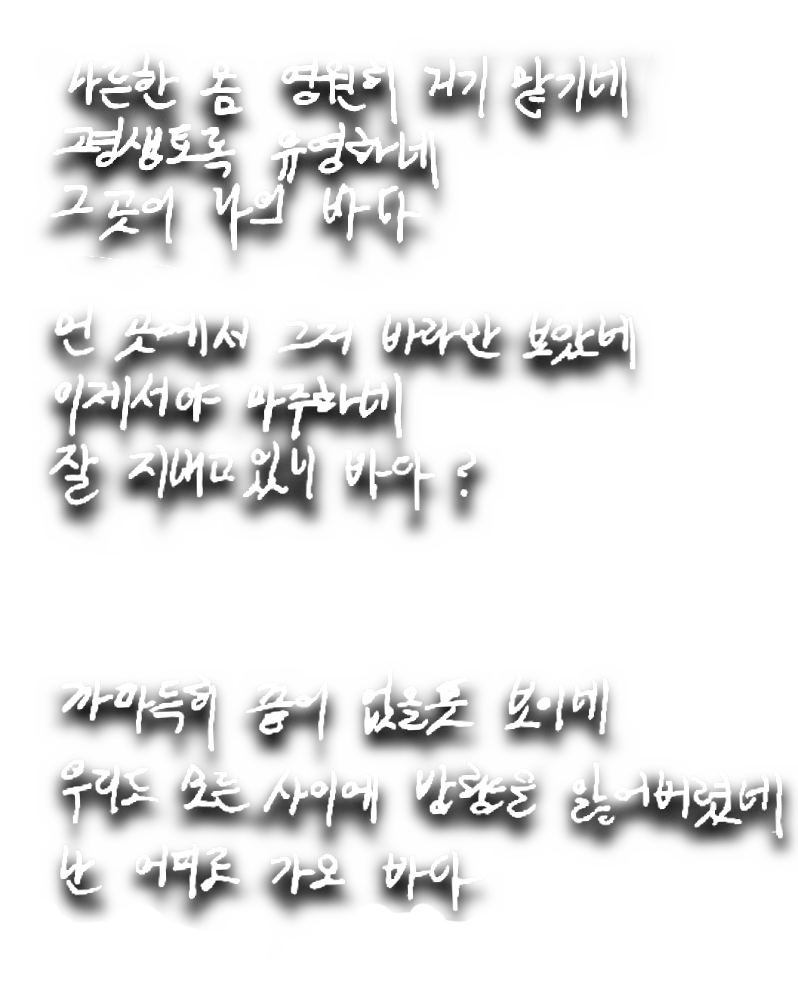 나른한 몸 영원히 거기 맡기네
평생토록 유영하네
그곳이 나의 바다
먼 곳에서 그저 바라만 보았네
이제서야 마주하네
잘 지내고 있니 바다 ?
까마득히 끝이 없을듯 보이네
우리도 모른 사이에 방향을 잃어버렸네
난 어디로 가오 바다